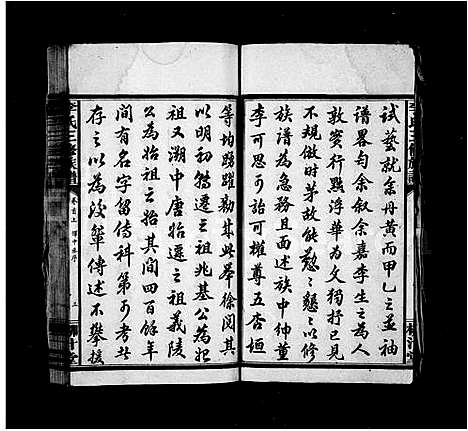 試藝就余丹黃而甲乙之並袖
譜畧句余叙余嘉李生之為人
敦實行黜浮華為文獨抒已見
不規規做時茅故能懇懇以修
族譜為急務且面述族中仲董
李可恕可權尊五杏垣
等均踴躍勷其此舉徐閱其
以明初始遷之祖兆基公為妃
祖又溯中唐始遷之祖義陵
公為始祖其間四百餘年
間有名字留傳科第可考者
存之以為後輩傳述不攀援
李氏三修族譜
卷首上
三